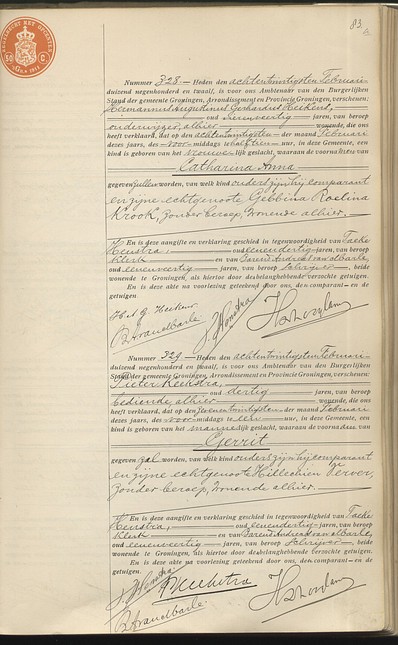 83
50 C
Nummer 328 — Heden den achtentwintigsten Februari
duizend negenhonderd en twaalf, is voor ons Ambtenaar van den Burgerlijken
Stand der gemeente Groningen, Arrondissement en Provincie Groningen, verschenen:
Hermannus Augustinus Gerhardus Heikens,
oud jaren, van beroep
onderwijzer, alhier wonende, die ons
heeft verklaard, dat op den achtentwintigsten der maand Februari
dezes jaars, des voor middags te half tien uur, in deze Gemeente, een
kind is geboren van het vrouwe lijk geslacht, waaraan de voornamen van
Catharina Anna
gegeven zullen worden, van welk kind ouders zijn hij comparant
en zijne echtgenoote Gebbina Roelina
Krook, zonder beroep, wonende alhier.
En is deze aangifte en verklaring geschied in tegenwoordigheid van Taeke
Heustra, oud eenendertig jaren, van beroep
klerk en van Barend Andreas van Dbarle,
oud eenenveertig jaren, van beroep schrijver, beide
wonende te Groningen, als hiertoe door de belanghebbende verzochte getuigen.
En is deze akte na voorlezing geteekend door ons, den comparant en de
getuigen
Nummer 329 — Heden den achtentwintigsten Februari
duizend negenhonderd en twaalf, is voor ons Ambtenaar van den Burgerlijken
Stand der gemeente Groningen, Arrondissement en Provincie Groningen, verschenen:
Pieter
oud dertig jaren, van beroep
bediende, alhier wonende, die ons
heeft verklaard, dat op den zevenentwintigsten der maand Februari
dezes jaars, des voormiddags te een uur, in deze Gemeente, een
kind is geboren van het mannelijk geslacht, waaraan de voornaam van
Gerrit
gegeven zal worden, van welk kind ouders zijn hij comparant
en zijne echtgenoote Hillechien Verver,
zonder beroep, wonende alhier.
En is deze aangifte en verklaring geschied in tegenwoordigheid van Taeke
Heustra, oud eenendertig jaren, van beroep
klerk en van Barend Andreas van Dbarle,
oud eenenveertig jaren, van beroep schrijver, beide
wonende te Groningen, als hiertoe door de belanghebbende verzochte getuigen.
En is deze akte na voorlezing geteekend door ons, den comparant en de
getuigen.